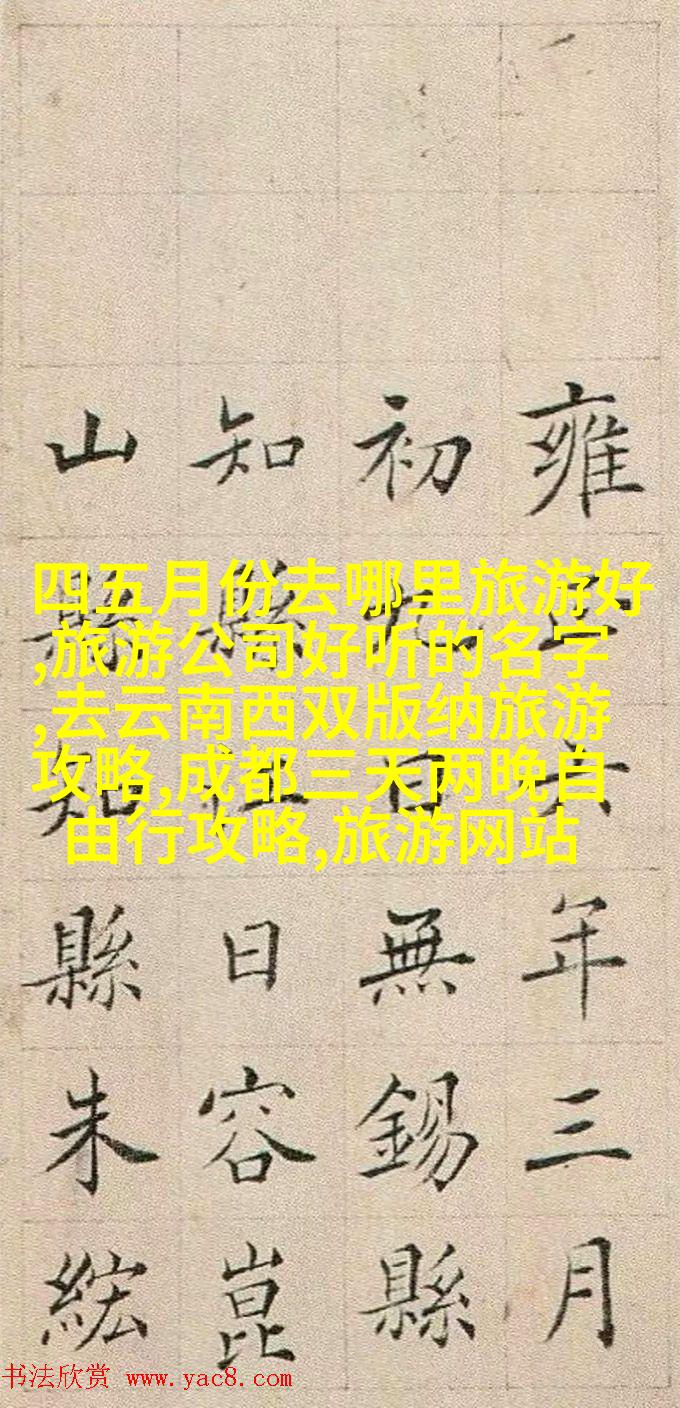 雍正六年三月
初日無錫縣
知縣日容崑
山縣知縣朱綋
四五月份去哪里旅游好
,旅游公司好听的名字
,去云南西双版纳旅游
攻略,成都三天两晚自
由行攻略,旅游网站
书法欣赏 www.yac8.com